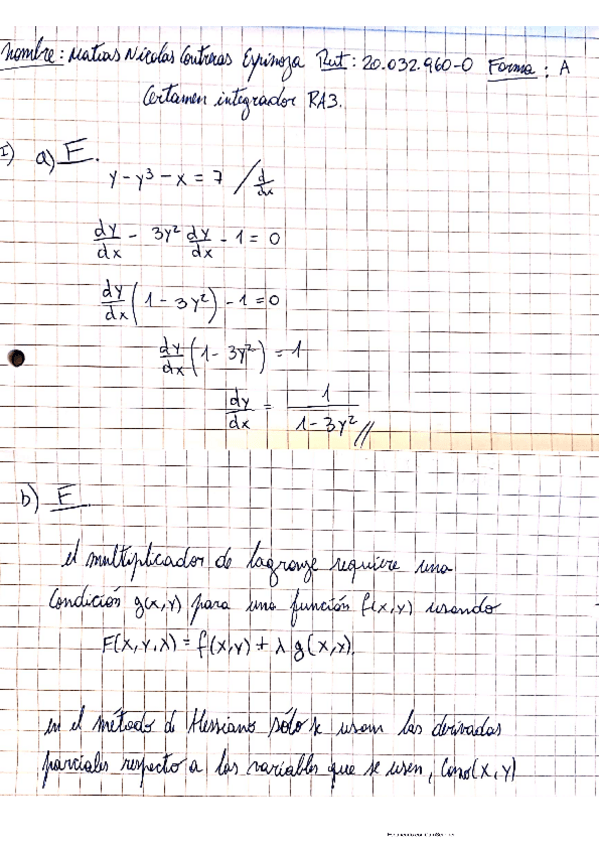 nombre: Matias Nicolas Contreras Espinoza Rut: 20.032.960-0 Forma: A
Certamen integrador RA3.
I) a) F.
y - y³ - x = 7 / d/dx
dy/dx - 3y² dy/dx - 1 = 0
dy/dx (1 - 3y²) - 1 = 0
dy/dx (1 - 3y²) = 1
dy/dx = 1/(1 - 3y²) //
b) F
el multiplicador de lagrange requiere una
Condición g(x,y) para una función f(x,y) usando
F(x,y,λ) = f(x,y) + λ g(x,y).
en el método de Hessiano sólo se usan las derivadas
parciales respecto a las variables que se usen, Como (x,y)